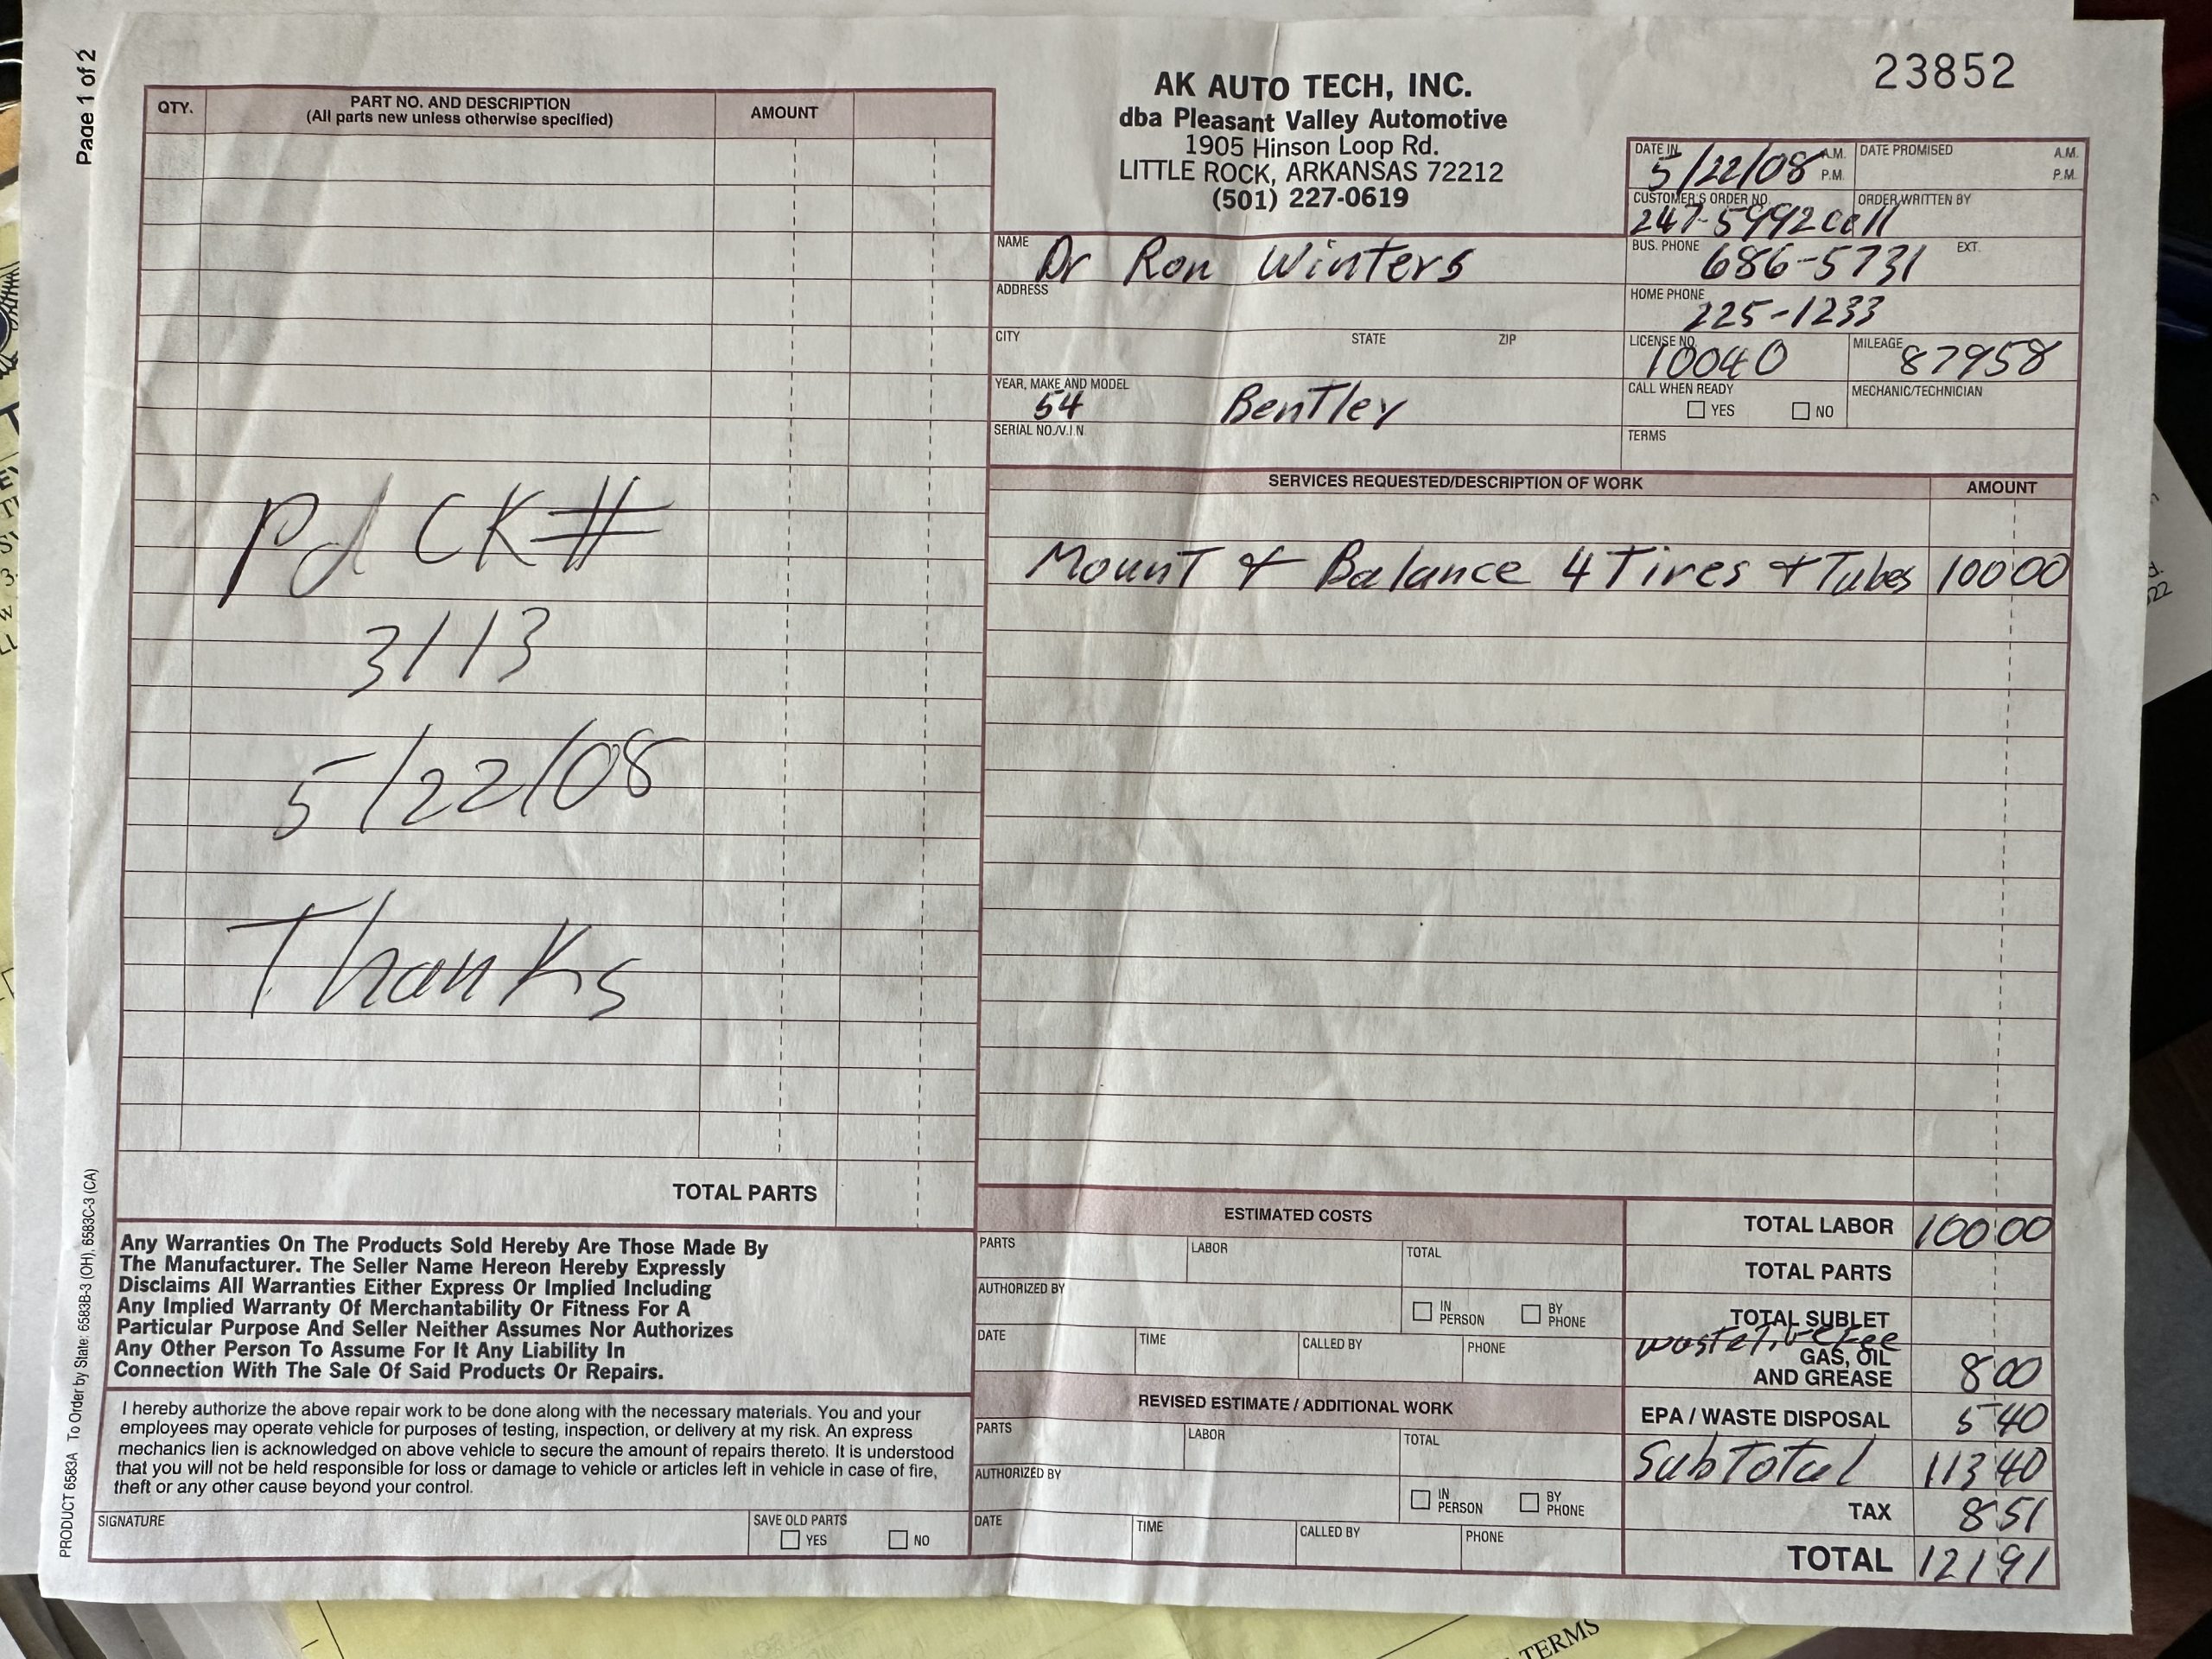 Page 1 of 2
23852
AK AUTO TECH, INC.
dba Pleasant Valley Automotive
1905 Hinson Loop Rd.
LITTLE ROCK, ARKANSAS 72212
(501) 227-0619
QTY.
PART NO. AND DESCRIPTION
(All parts new unless otherwise specified)
AMOUNT
Pd CK#
3113
5/22/08
Thanks
TOTAL PARTS
DATE IN
5/22/08
A.M.
P.M.
DATE PROMISED
A.M.
P.M.
CUSTOMER'S ORDER NO.
247-5992 Cell
ORDER WRITTEN BY
NAME
Dr Ron Winters
BUS. PHONE
686-5731
EXT.
ADDRESS
HOME PHONE
225-1233
CITY
STATE
ZIP
LICENSE NO.
10040
MILEAGE
87958
YEAR, MAKE AND MODEL
54 Bentley
CALL WHEN READY
YES
NO
MECHANIC/TECHNICIAN
SERIAL NO./V.I.N.
TERMS
SERVICES REQUESTED/DESCRIPTION OF WORK
AMOUNT
Mount & Balance 4 Tires & Tubes 100 00
ESTIMATED COSTS
PARTS
LABOR
TOTAL
AUTHORIZED BY
IN PERSON
BY PHONE
DATE
TIME
CALLED BY
PHONE
REVISED ESTIMATE / ADDITIONAL WORK
PARTS
LABOR
TOTAL
AUTHORIZED BY
IN PERSON
BY PHONE
DATE
TIME
CALLED BY
PHONE
TOTAL LABOR 100 00
TOTAL PARTS
TOTAL SUBLET
waste Fee
GAS, OIL
AND GREASE 8 00
EPA / WASTE DISPOSAL 5 40
SubTotal 113 40
TAX 8 51
TOTAL 121 91
Any Warranties On The Products Sold Hereby Are Those Made By
The Manufacturer. The Seller Name Hereon Hereby Expressly
Disclaims All Warranties Either Express Or Implied Including
Any Implied Warranty Of Merchantability Or Fitness For A
Particular Purpose And Seller Neither Assumes Nor Authorizes
Any Other Person To Assume For It Any Liability In
Connection With The Sale Of Said Products Or Repairs.
I hereby authorize the above repair work to be done along with the necessary materials. You and your
employees may operate vehicle for purposes of testing, inspection, or delivery at my risk. An express
mechanics lien is acknowledged on above vehicle to secure the amount of repairs thereto. It is understood
that you will not be held responsible for loss or damage to vehicle or articles left in vehicle in case of fire,
theft or any other cause beyond your control.
SIGNATURE
SAVE OLD PARTS
YES
NO
PRODUCT 6583A To Order by State: 6583B-3 (OH), 6583C-3 (CA)
TERMS